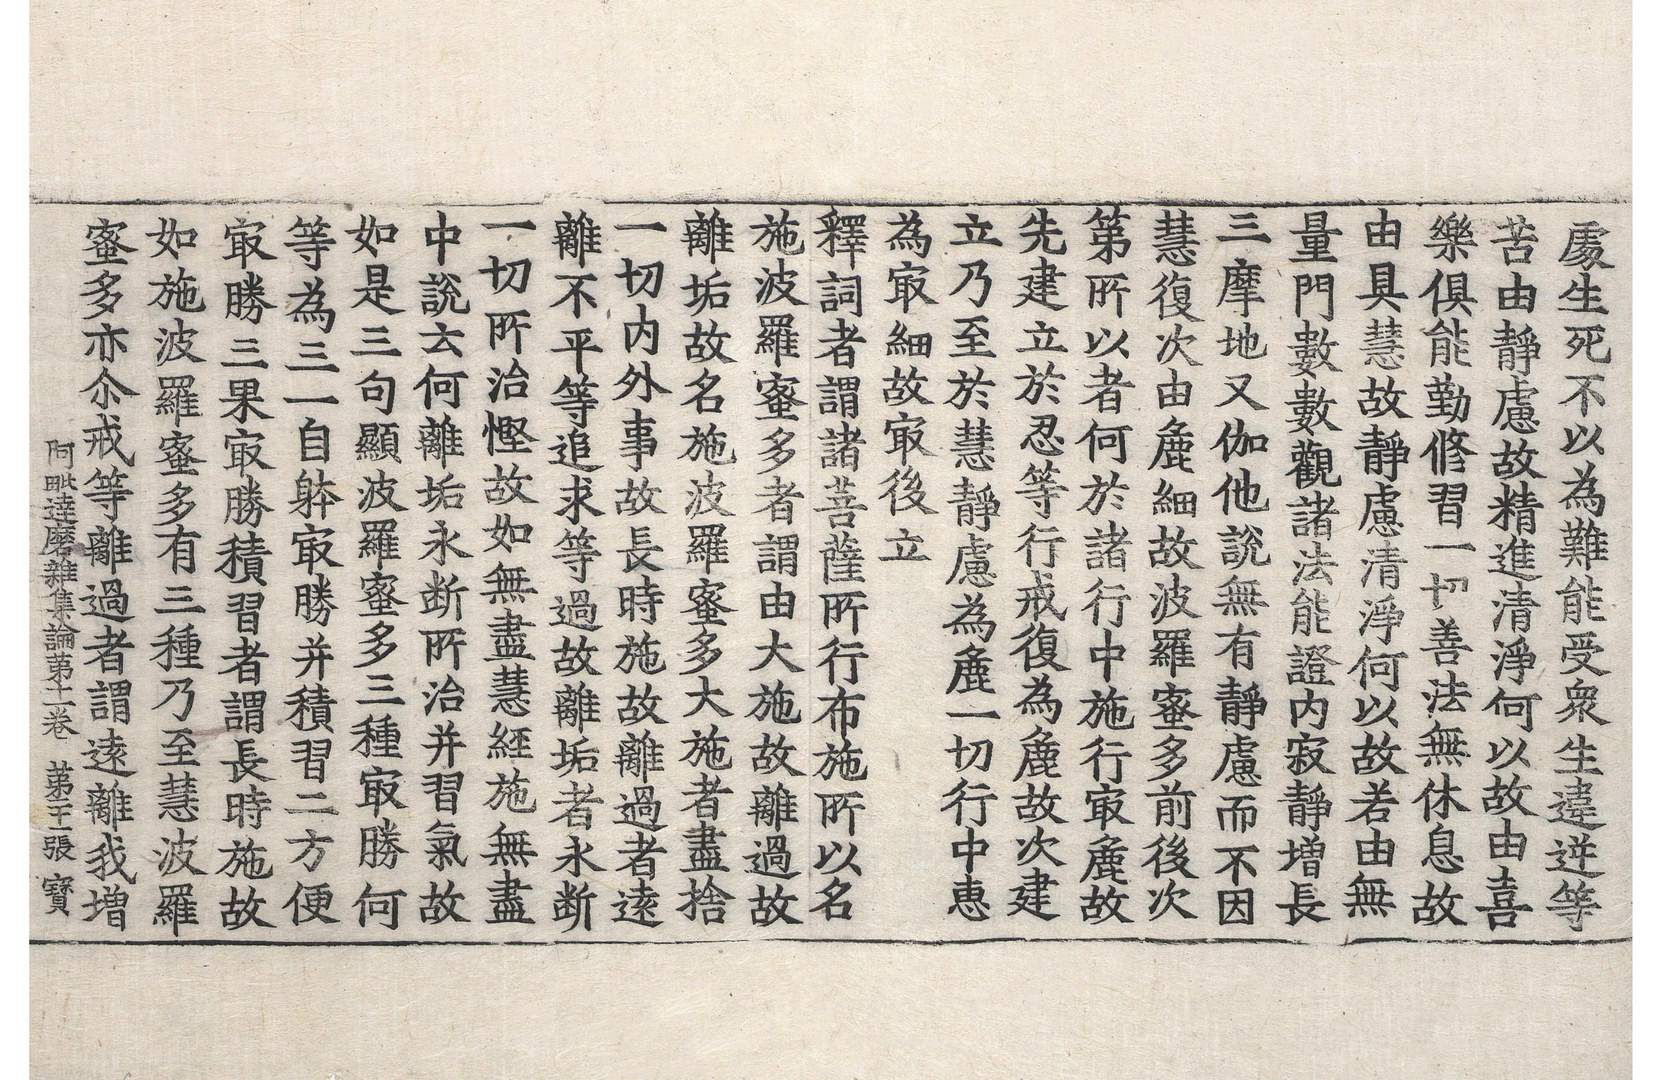 處生死不以為難能受衆生違逆等
苦由靜慮故精進清淨何以故由喜
樂俱能勤修習一切善法無休息故
由具慧故靜慮清淨何以故若由無
量門數數觀諸法能證內寂靜增長
三摩地又伽他說無有靜慮而不因
慧復次由麁細故波羅蜜多前後次
第所以者何於諸行中施行冣麁故
先建立於忍等行戒復為麁故次建
立乃至於慧靜慮為麁一切行中惠
為冣細故冣後立
釋詞者謂諸菩薩所行布施所以名
施波羅蜜多者謂由大施故離過故
離垢故名施波羅蜜多大施者盡捨
一切內外事故長時施故離過者遠
離不平等追求等過故離垢者永断
一切所治慳故如無盡慧經施無盡
中說云何離垢永断所治并習氣故
如是三句顯波羅蜜多三種冣勝何
等為三一自躰冣勝并積習二方便
冣勝三果冣勝積習者謂長時施故
如施波羅蜜多有三種乃至慧波羅
蜜多亦尒戒等離過者謂遠離我增
阿毗達磨雜集論第十二卷 第二十一張 寶